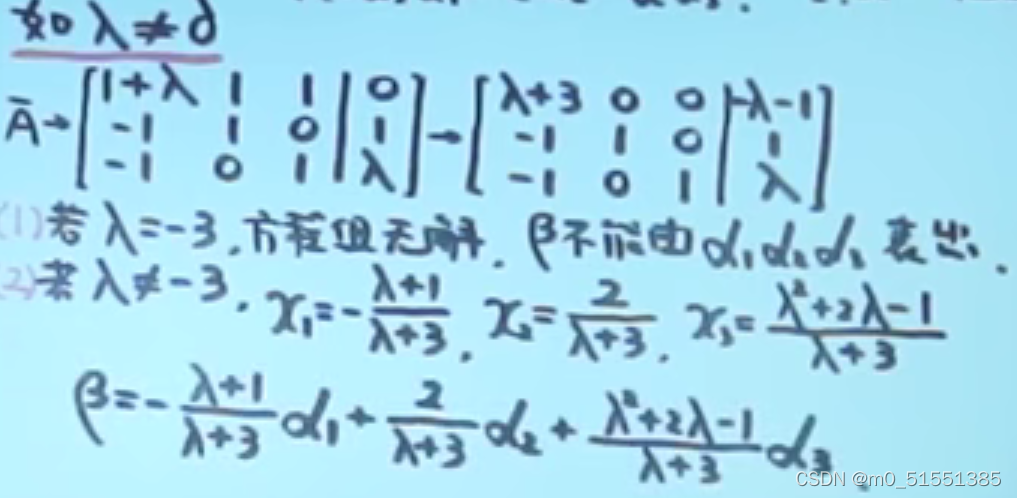 如 λ≠0
Ā→[1+λ 1 1 | 0; -1 1 0 | 1; -1 0 1 | λ]→[λ+3 0 0 | -λ-1; -1 1 0 | 1; -1 0 1 | λ]
(1)若 λ=-3,方程组无解,β不能由α₁α₂α₃ 表出.
2)若 λ≠-3, x₁=-\frac{λ+1}{λ+3}, x₂=\frac{2}{λ+3}, x₃=\frac{λ²+2λ-1}{λ+3}
β=-\frac{λ+1}{λ+3}α₁+\frac{2}{λ+3}α₂+\frac{λ²+2λ-1}{λ+3}α₃
CSDN @m0_51551385